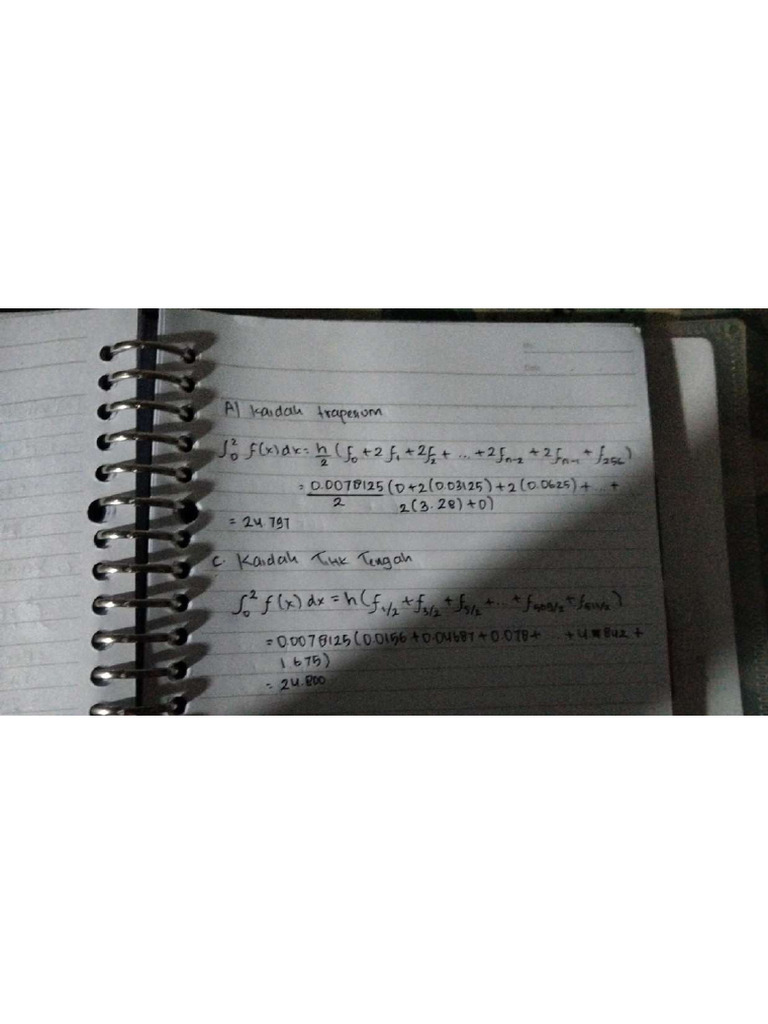 A) Kaidah trapesium
∫₀² f(x) dx = h/2 (f₀ + 2f₁ + 2f₂ + ... + 2fₙ₋₂ + 2fₙ₋₁ + f₂₅₆)
= 0.0078125/2 (0 + 2(0.03125) + 2(0.0625) + ... +
2(3.28) + 0)
= 24.797
C. Kaidah Titik Tengah
∫₀² f(x) dx = h (f₁/₂ + f₃/₂ + f₅/₂ + ... + f₅₀₉/₂ + f₅₁₁/₂)
= 0.0078125 (0.0156 + 0.04687 + 0.078 + ... + 842 +
1.675)
= 24.800